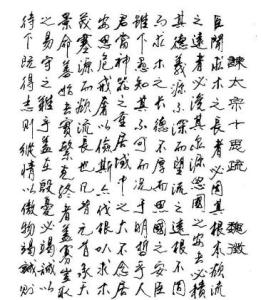 諫太宗十思疏 魏徵
臣聞求木之長者必固其根本欲流
之遠者必浚其泉源思國之安者必積
其德義源不深而望流之遠根不固
而求木之長德不厚而思國之安臣
雖下愚知其不可而況于明哲乎人
君當神器之重居域中之大不念居
安思危戒奢以儉斯亦伐根以求木
茂塞源而欲流長也凡昔元首承天
景命善始者實繁克終者蓋寡豈取
之易守之難乎蓋在殷憂必竭誠以
待下既得志則縱情以傲物竭誠則